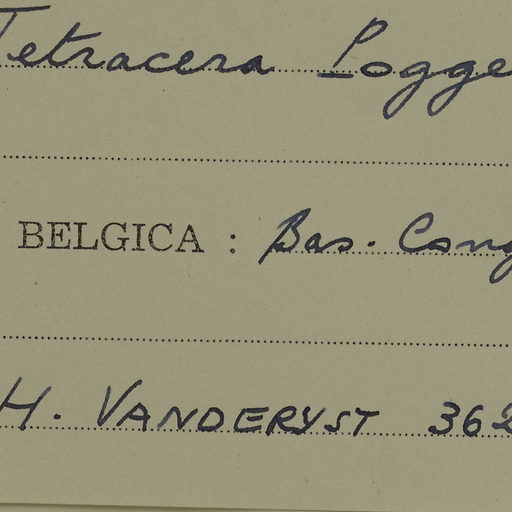 Tetracera Pogge
BELGICA : Bas. Cong
H. VANDERYST 362